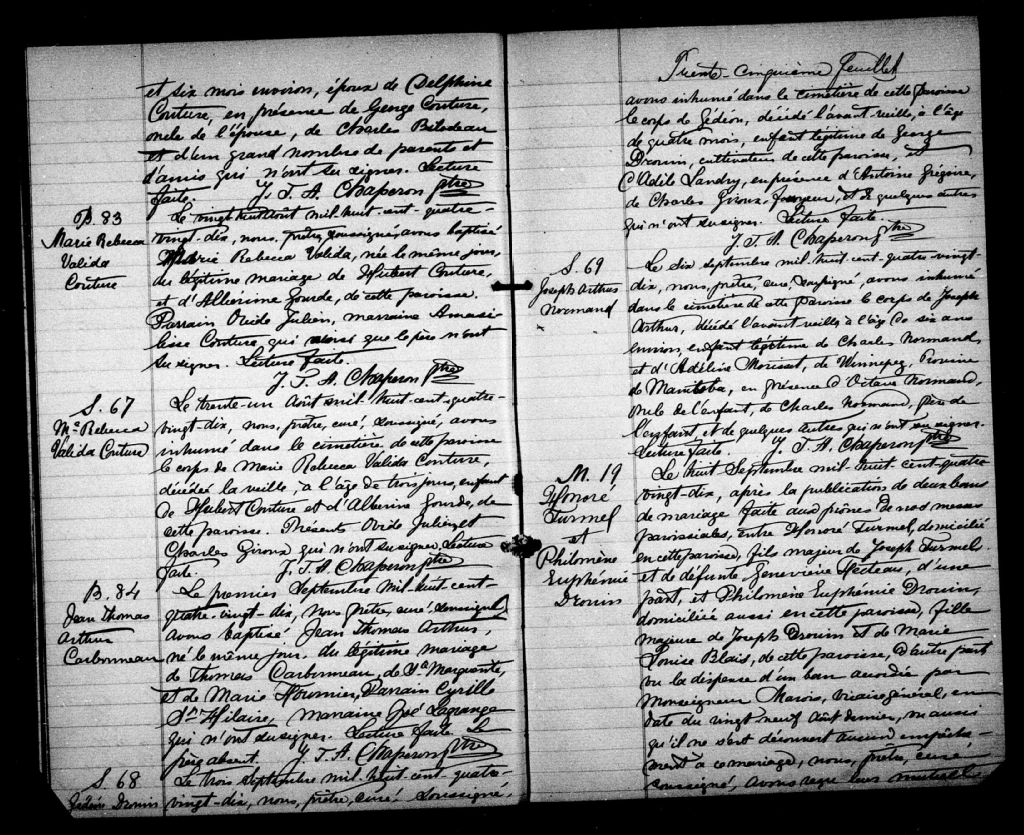 et six mois environ, époux de Delphine
Couture, en présence de George Couture,
oncle de l'épouse, de Charles Bilodeau
et d'un grand nombre de parents et
d'amis qui n'ont su signer. Lecture
faite. J. T. A. Chaperon ptre
B. 83
Marie Rebecca
Valida
Couture
Le vingt huit août mil-huit-cent-quatre-
vingt-dix, nous, prêtre, soussigné, avons baptisé
Marie Rebecca Valida, née le même jour,
du légitime mariage de Hubert Couture,
et d'Albertine Gourde, de cette paroisse.
Parrain Ovide Julien, marraine
Couture, qui ainsi que le père n'ont
su signer. Lecture faite.
J. T. A. Chaperon ptre
S. 67
Mie Rebecca
Valida Couture
Le trente-un Août mil-huit-cent-quatre-
vingt-dix, nous, prêtre, curé, soussigné, avons
inhumé dans le cimetière de cette paroisse
le corps de Marie Rebecca Valida Couture,
décédée la veille à l'âge de trois jours, enfant
de Hubert Couture et d'Albertine Gourde, de
cette paroisse. Présents Ovide Julien et
Charles Giroux qui n'ont su signer. Lecture
faite. J. T. A. Chaperon ptre
B. 84
Jean Thomas
Arthur
Carbonneau
Le premier Septembre mil-huit-cent-
quatre-vingt-dix, nous prêtre, curé, soussigné,
avons baptisé Jean Thomas Arthur,
né le même jour, du légitime mariage
de Thomas Carbonneau, de Ste Marguerite,
et de Marie Fournier, Parrain Cyrille
St Hilaire, marraine Lagrange
qui n'ont su signer. Lecture faite. Le
père absent. J. T. A. Chaperon ptre
S. 68
Gédéon Drouin
Le trois Septembre mil-huit-cent-quatre-
vingt-dix, nous, prêtre, curé, soussigné,
Trente-cinquième feuillet
avons inhumé dans le cimetière de cette paroisse
le corps de Gédéon, décédé l'avant-veille, à l'âge
de quatre mois, enfant légitime de George
Drouin, cultivateur de cette paroisse, et
d'Adile Landry, en présence d'Antoine Grégoire,
de Charles Giroux, fossoyeur, et de quelques autres
qui n'ont su signer. Lecture faite.
J. T. A. Chaperon ptre
S. 69
Joseph Arthur
Normand
Le six septembre mil-huit-cent-quatre-vingt-
dix, nous, prêtre, curé soussigné, avons inhumé
dans le cimetière de cette paroisse le corps de Joseph
Arthur, décédé l'avant-veille, à l'âge de six ans
environ, enfant légitime de Charles Normand,
et d'Adéline Morisset, de Winnipeg, Province
de Manitoba, en présence d'Octave Normand,
oncle de l'enfant, de Charles Normand, père de
l'enfant, et de quelques autres qui n'ont su signer.
Lecture faite. J. T. A. Chaperon ptre
M. 19
Honoré
Turmel
et
Philomène
Euphémie
Drouin
Le huit Septembre mil-huit-cent-quatre-
vingt-dix, après la publication de deux bans
de mariage faite aux prônes de nos messes
paroissiales, entre Honoré Turmel, domicilié
en cette paroisse, fils majeur de Joseph Turmel
et de défunte Geneviève Nadeau, d'une
part, et Philomène Euphémie Drouin,
domiciliée aussi en cette paroisse, fille
majeure de Joseph Drouin et de Marie
Louise Blais, de cette paroisse, d'autre part
vu la dispense d'un ban accordée par
Monseigneur Marois, vicaire général, en
date du vingt neuf Août dernier, vu aussi
qu'il ne s'est découvert aucun empêche-
ment à ce mariage, nous, prêtre, curé
soussigné, avons reçu leur mutuel